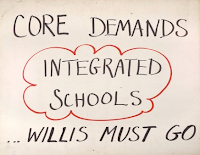 CORE DEMANDS
INTEGRATED
SCHOOLS
...WILLIS MUST GO